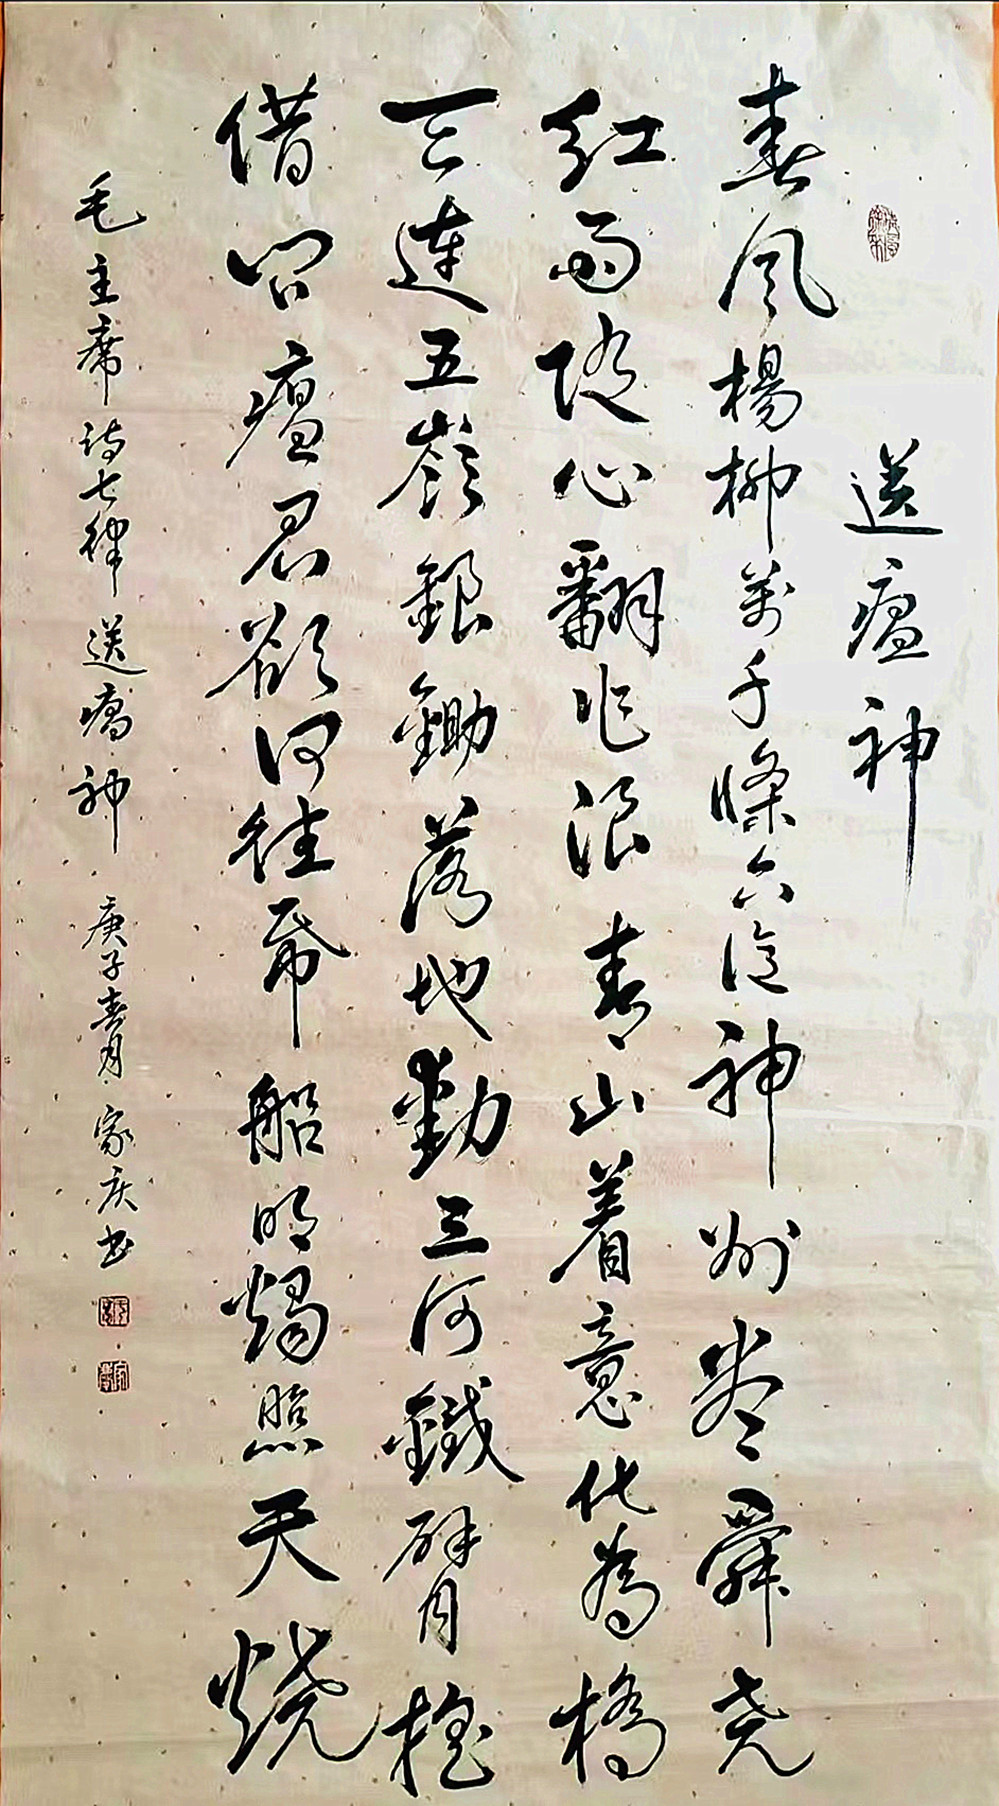 送瘟神
春风楊柳萬千條六億神州尽舜尧
红雨随心翻作浪青山着意化為橋
天連五嶺銀鋤落地動三河鐵臂摇
借问瘟君欲何往帋船明燭照天烧
毛主席诗七律送瘟神 庚子春月 家庆书